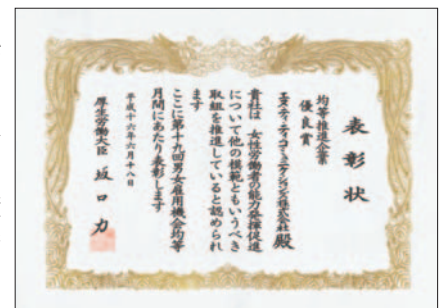 表彰状
均等推進企業
優良賞
エヌ・ティ・ティ・コミュニケーションズ株式会社殿
貴社は 女性労働者の能力発揮促進
について他の模範ともいうべき
取組を推進していると認められ
ます
ここに第十九回男女雇用機会均等
月間にあたり表彰します
平成十六年六月十八日
厚生労働大臣 坂口力